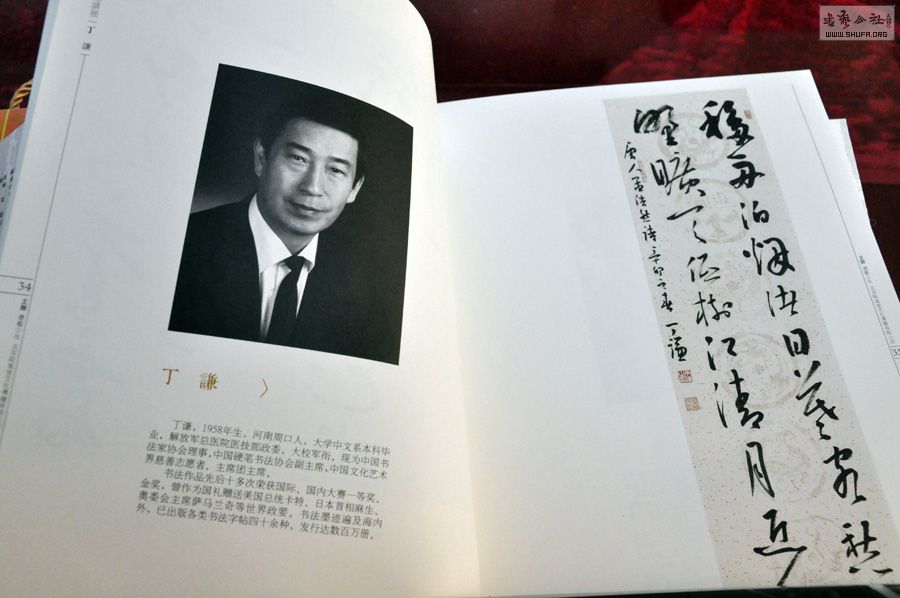 書藝公社
WWW.SHUFA.ORG
丁 謙
34
丁 謙
丁谦，1958年生，河南周口人，大学中文系本科毕
业，解放军总医院医技部政委，大校军衔，现为中国书
法家协会理事，中国硬笔书法协会副主席，中国文化艺术
界慈善志愿者，主席团主席。
书法作品先后十多次荣获国际、国内大赛一等奖，
金奖，曾作为国礼赠送美国总统卡特、日本首相麻生、
奥委会主席萨马兰奇等世界政要。书法墨迹遍及海内
外，已出版各类书法字帖四十余种，发行达数百万册。
移舟泊烟渚日暮客愁
野曠天低樹江清月近
唐人孟浩然诗辛卯之春 丁谦